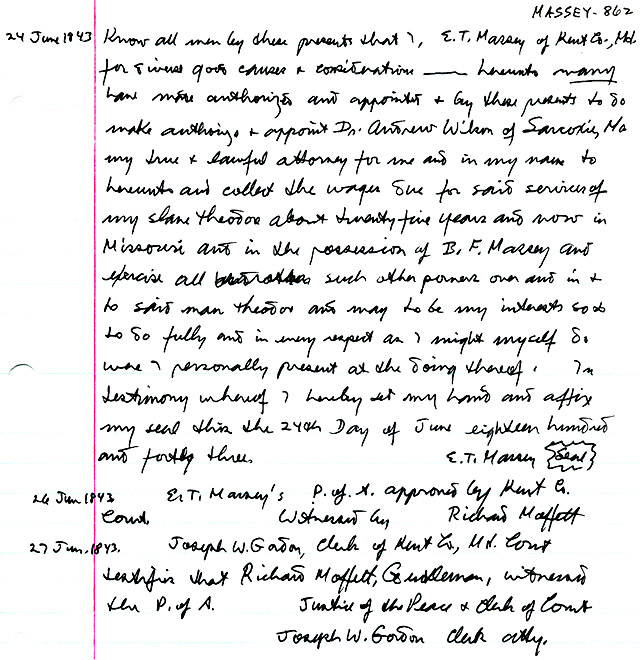 MASSEY-862
24 June 1843 Know all men by these presents that I, E.T. Massey of Kent Co., Md.
for divers good causes & consideration — hereunto many
have made authorized and appointed & by these presents to do
make authorize & appoint Dr. Andrew Wilson of Sarcoxie, Mo
my true & lawful attorney for me and in my name to
hereunto and collect the wages due for said services of
my slave Theodor about twenty five years and now in
Missouri and in the possession of B. F. Massey and
exercise all such other powers over and in &
to said man Theodor as may to be my interests so to
to do fully and in every respect as I might myself do
were I personally present at the doing thereof. In
testimony whereof I hereby set my hand and affix
my seal this the 24th Day of June eighteen hundred
and forty three. E.T. Massey {Seal}
26 Jun 1843 E.T. Massey's P. of A. approved by Kent Co.
Court. Witnessed by Richard Moffett
27 Jun. 1843. Joseph W. Gordon, Clerk of Kent Co, Md. Court
testifies that Richard Moffett, Gentleman, witnessed
the P. of A. Justice of the Peace & Clerk of Court
Joseph W. Gordon Clerk